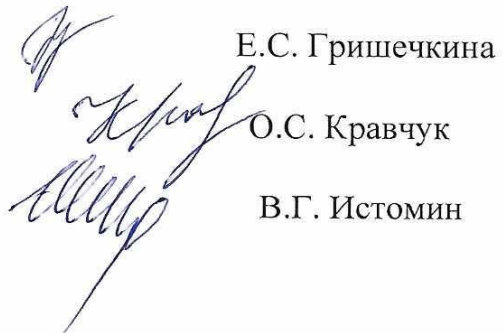 Е.С. Гришечкина
О.С. Кравчук
В.Г. Истомин